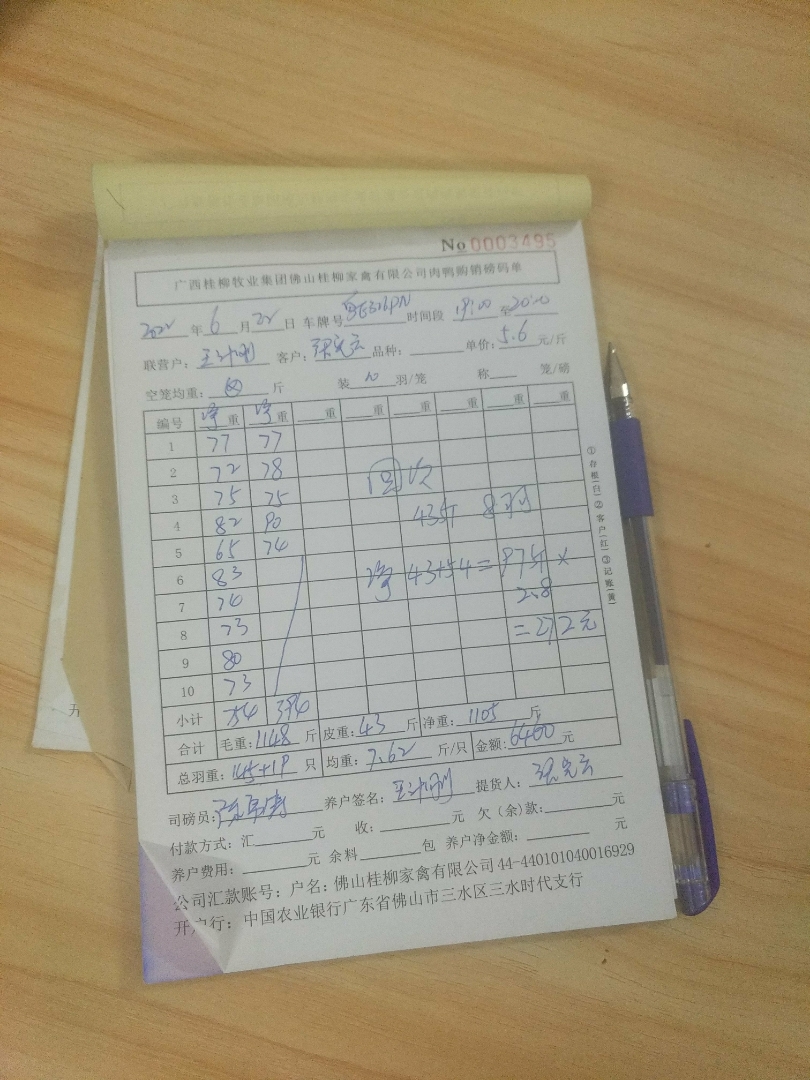 No 0003495
广西桂柳牧业集团佛山桂柳家禽有限公司肉鸭购销磅码单
2022 年 6 月 22 日 车牌号 时间段 19:00 至 20:00
联营户: 客户: 品种: 单价: 5.6 元/斤
空笼均重: 斤 装 10 羽/笼 称 笼/磅
编号 净重 净重 重 重 重 重 重 重
1 77 77
2 72 78
3 75 75
4 82 90
5 65 74
6 83
7 74
8 73
9 80
10 73
43斤 8羽
净 43+54=97斤×
2.8
=272元
小计 754 394
合计 毛重: 1148 斤 皮重: 43 斤 净重: 1105 斤
总羽重: 145+1P 只 均重: 7.62 斤/只 金额: 6460 元
司磅员: 养户签名: 提货人:
付款方式: 汇 元 收: 元 欠(余)款: 元
养户费用: 元 余料 包 养户净金额: 元
公司汇款账号: 户名: 佛山桂柳家禽有限公司 44-440101040016929
开户行: 中国农业银行广东省佛山市三水区三水时代支行
①存根(白)②客户(红)③记账(黄)